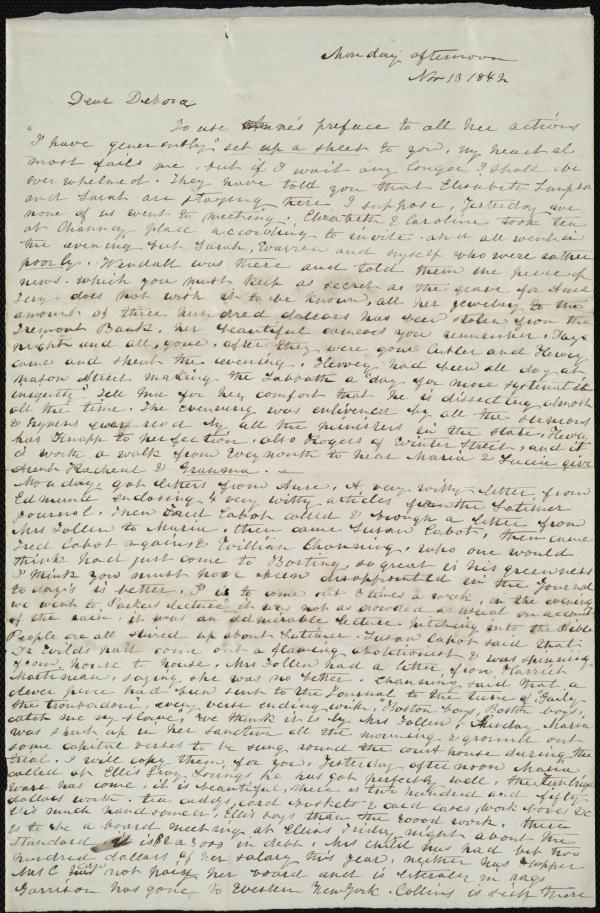 Monday afternoon
Nov 13 1842
Dear Debora
To use Anne's preface to all her actions
"I have generously" set up a sheet to you, my heart al
most fails me, but if I wait any longer I shall be
overwhelmed. They have told you that Elisabeth
and Sarah are staying here I suppose, Yesterday we
none of us went to meeting. Elizabeth & Caroline took tea
at Chauncy place according to invite. and all went in
the evening but Sarah, Warren and myself who were rather
poorly. Wendall was there and told them one piece of
news. which you must keep as secret as the grave for Aunt
does not wish it to be known, all her jewelry to the
amount of three hundred dollars has been stolen from the
Tremont Bank. her beautiful cameos you remember.
and all, gone. after they were gone Cutler and Hervey
came and spent the evening. Hervey had been all day at
Mason Street making the Sabbath a "day for more systematick
iniquity" Tell for her comfort that he is dissecting almost
all the time. The evening was enlivened by all the sermons
& hymns ever read by all the ministers in the state, Hervey
has Knapp to perfection. also Rogers of Winter Street, and it
is worth a walk from Weymouth to hear Maria & Lucia give
Aunt Rachael & Granma.
Monday, got letters from Anne. A very witty letter from
Edmund enclosing 4 very witty articles for the Latimer
Journal. Then Fred Cabot called & brough a letter from
Mrs Follen to Maria, then came Susan Cabot, then came
Fred Cabot again, & William Channing, who one would
think had just come to Boston, so great is his greenness
I think you must have been disappointed in the Journal
to day's is better. It is to come out 3 times a week. in the evening
we went to Parkers lecture, it was not as crowded as usual on account
of the rain. it was an admirable lecture pitching into the Bible
People are all stirred up about Latimer. Susan Cabot said that
Dr had come out a flaming abolitionist & was spinning
from house to house. Mrs Follen had a letter from Harriet
Martineau, saying she was no better. Channing said that a
clever piece had been sent to the Journal to the tune of "Gaily
the troubadour, every verse ending with, "Boston boys, Boston boys,
catch me my slave," We think it is by Mrs Follen, Sunday Maria
was shut up in her sanctum all the morning & ground out
some capital verses to be sung round the court house during the
trial. I will copy them for you, Yesterday afternoon Maria
called at Ellis Gray Lorings, he has got perfectly well, the
ware has come, it is beautiful, there is two hundred and fifty
dollars worth. tea caddys, card baskets & card cases, work boxes &c
it is much handsomer, Ellis says than the wood work. there
is to be a board meeting at Ellis's Friday night about the
Standard it is in debt. Mrs Child has had but two
hundred dollars of her salary this year, neither has
Mrs C not paid her board and is literally in rags
Garrison has gone to Western New York. Collins is sick there